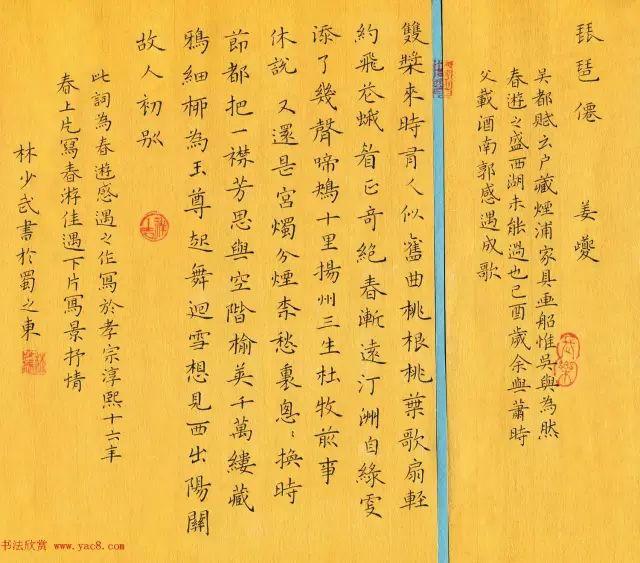 琵琶僊 姜夔
吴都賦云户藏煙浦家具畫船惟吴興為然
春遊之盛西湖未能過也己酉歲余與蕭時
父載酒南郭感遇成歌
雙槳來時有人似舊曲桃根桃葉歌扇輕
約飛花蛾眉正奇絕春漸遠汀洲自緑更
添了幾聲啼鴂十里揚州三生杜牧前事
休説 又還是宮燭分煙柰愁裏怱〻換時
節都把一襟芳思與空階榆莢千萬縷藏
鴉細柳為玉尊起舞迴雪想見西出陽關
故人初别
此詞為春遊感遇之作寫於孝宗淳熙十六年
春上片寫春游佳遇下片寫景抒情
林少武書於蜀之東
书法欣赏 www.yac8.com